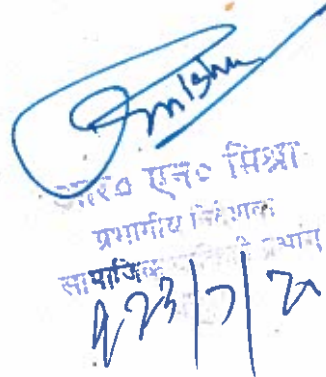 आर० एन० मिश्रा
प्रभागीय निदेशक
सामाजिक वानिकी प्रभाग
23/7/20